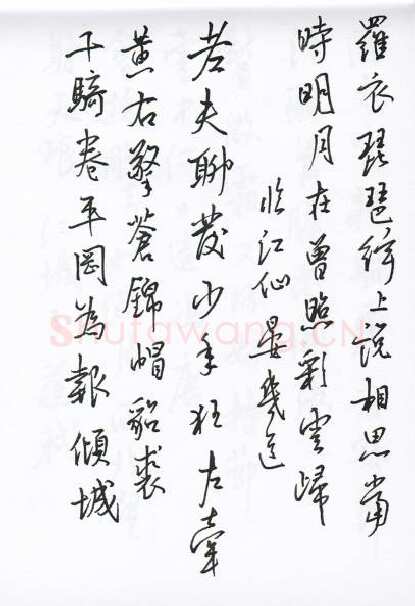 羅衣琵琶絃上説相思當
時明月在曾照彩雲歸
臨江仙晏幾道
老夫聊發少年狂左牽
黃右擎蒼錦帽貂裘
千騎卷平岡為報傾城
Shufawang.CN